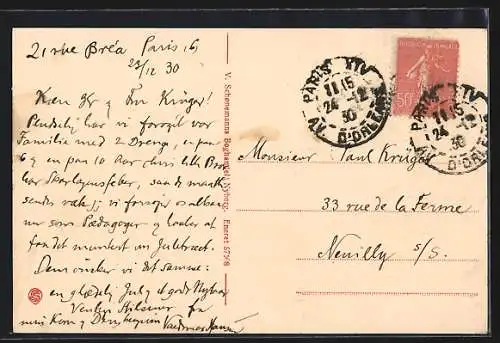 21 rue Bréa Paris (6)
23/12 30
Kære Hr & Fru Krüger!
Pludselig har vi forøget vor
Familie med 2 Drenge, en paa
6 & en paa 10 Aar hvis lille Bror
har Skarlagensfeber, saa de maatte
sendes væk; vi forsøger os altsaa
nu som Pædagoger & lader at
faa det muntert om Juletræet.
Dem ønsker vi det samme:
en glædelig Jul & godt Nytaar
Venlig Hilsener fra
min Kone & Deres hengivne Valdemar Hansen
V. Schønemanns Boghandel, Nyborg. Eneret 57508
PARIS XIV
11 15
24 -12
30
AV. D'ORLEANS
50c
PARIS XIV
11 15
24 -12
30
AV. D'ORLEANS
Monsieur Paul Krüger
33 rue de la Ferme
Neuilly s/S.